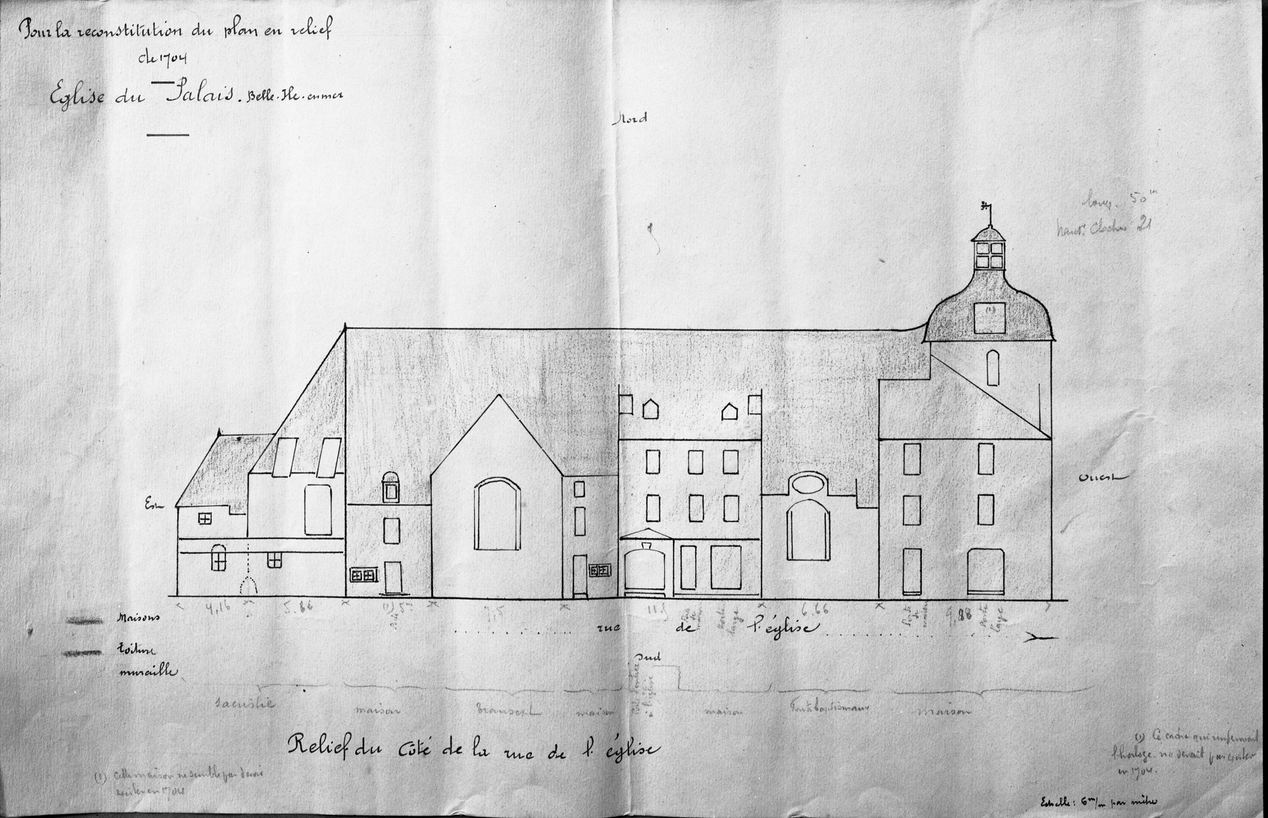 Pour la reconstitution du plan en relief
de 1704
Eglise du Palais. Belle-Ile-en-mer
Nord
long. 50m
haut. Clocher 21
(1)
Est
Ouest
4,16 5.66 7,5 11.5 6.66 9,88
Porte large Porte large
Maisons
rue de l'église
toiture
muraille
Sud
Sacristie maison transept maison maison Fonts baptismaux maison
Relief du Côté de la rue de l'église
(1) Ce cadre qui renfermait
l'horloge ne devait pas exister
en 1704.
(1) cette maison ne semble pas devoir
exister en 1704
Echelle: 6m/m par mètre